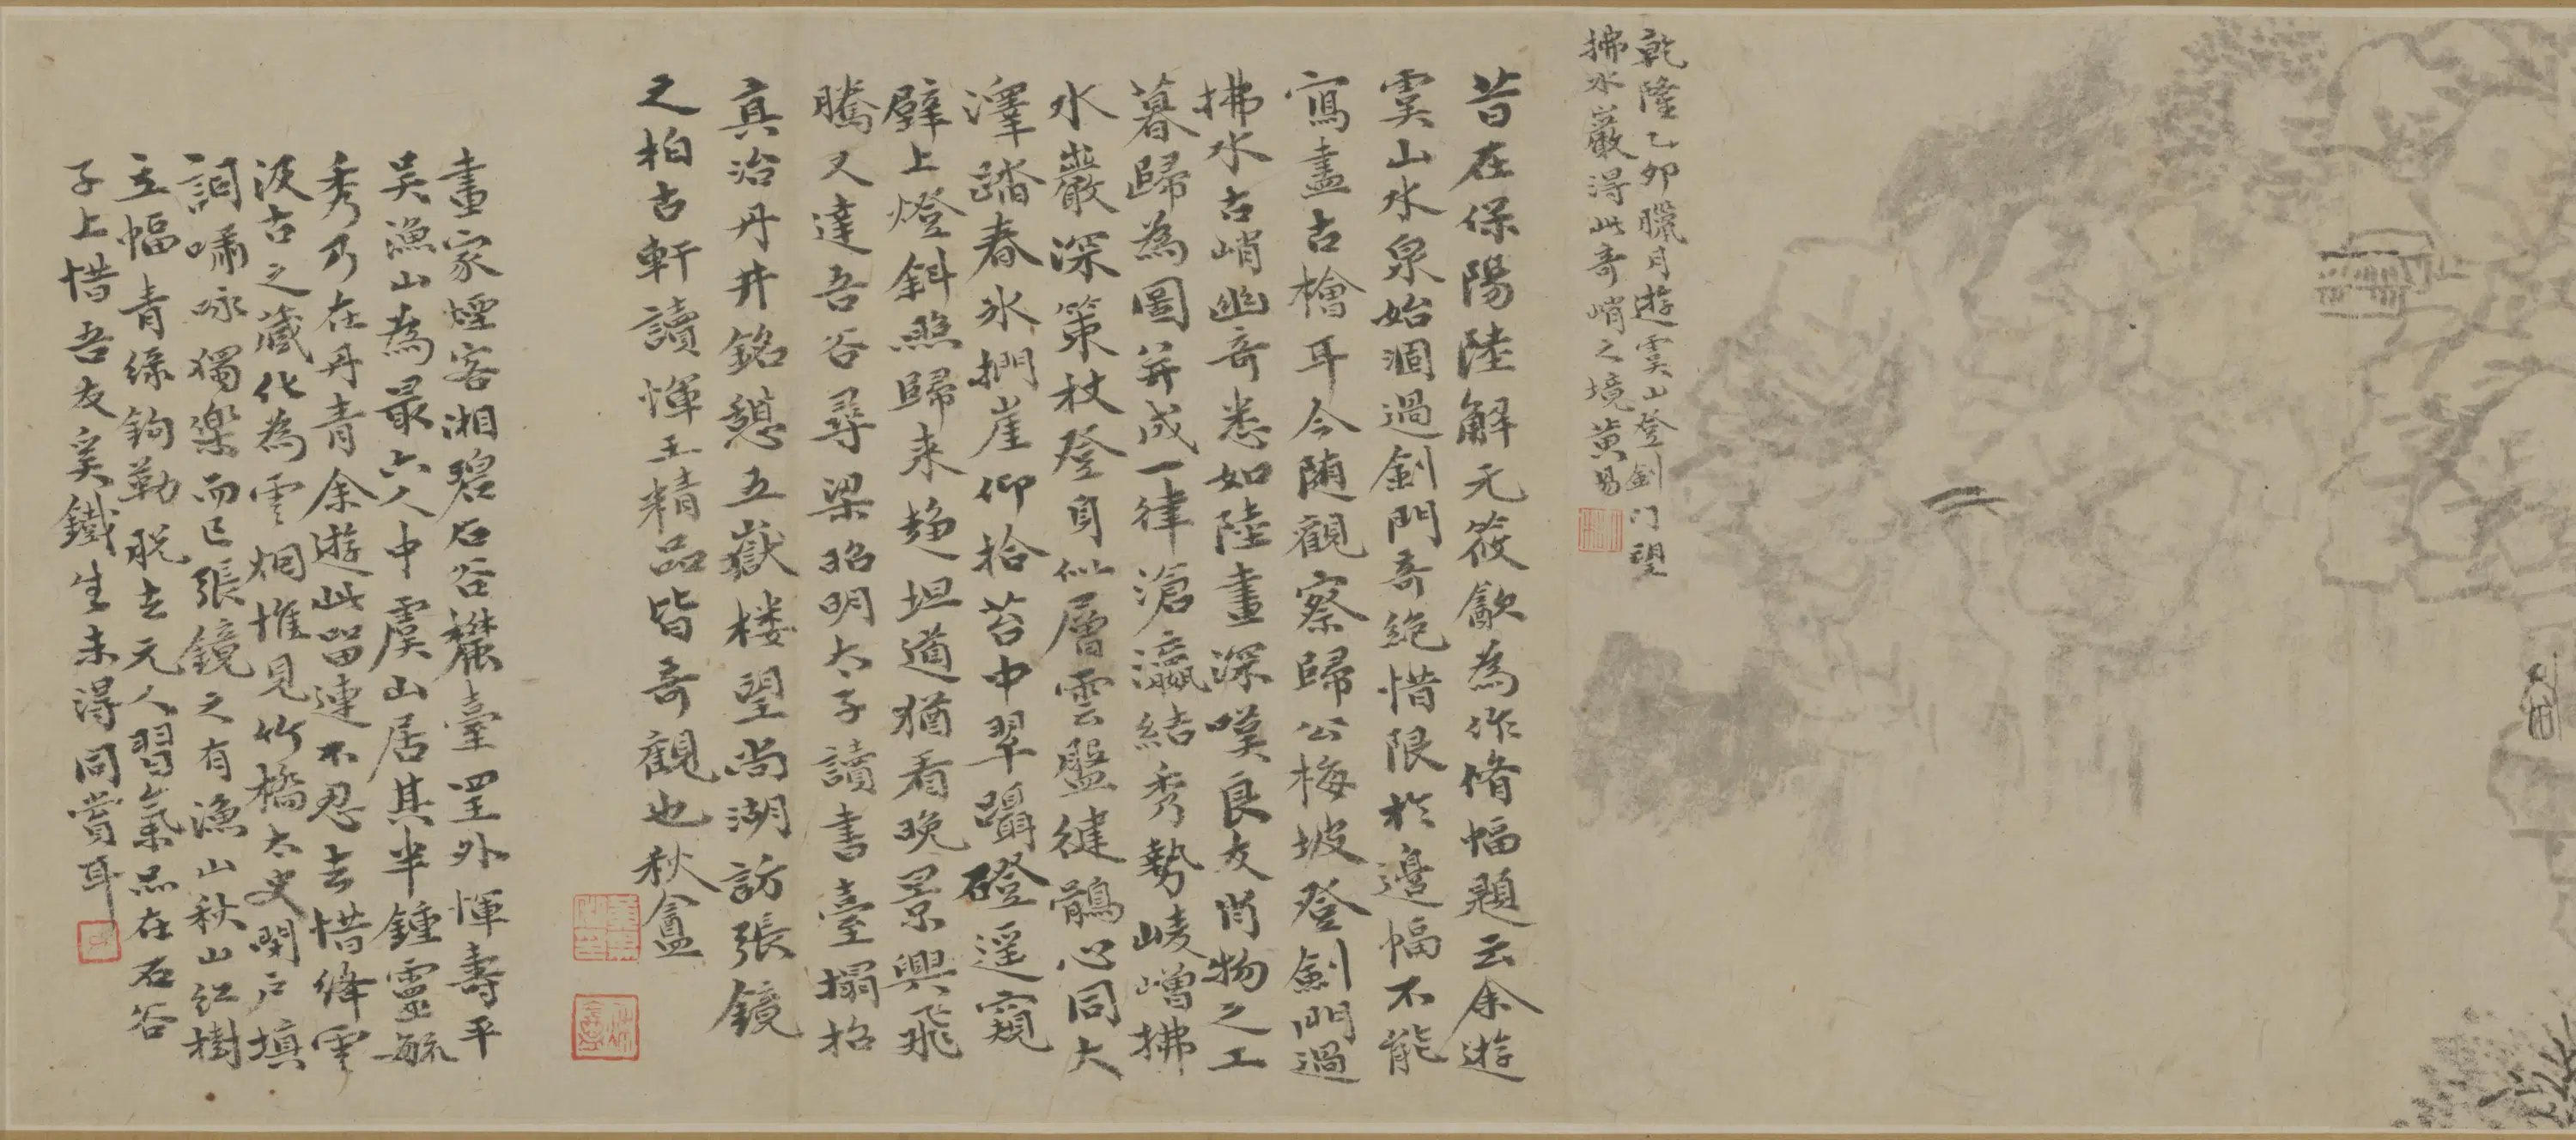 乾隆乙卯臘月遊虞山登劍门望
拂水巖得此奇峭之境黄易
昔在保陽陸解元筱飲為作脩幅題云余遊
虞山水泉始涸過劍門奇絶惜限於邊幅不能
寫盡古檜耳今随觀察歸公梅坡登劍門過
拂水古峭幽奇悉如陸畫深嘆良友肖物之工
暮歸為圖并成一律滄瀛結秀勢崚嶒拂
水巖深策杖登身似層雲盤健鶻心同大
澤踏春冰捫崖仰拾苔中翠躡磴遥窺
壁上燈斜照歸来趁坦道猶看晚景興飛
騰又達吾谷尋梁昭明太子讀書臺搨招
真治丹井銘憇五嶽楼望尚湖訪張鏡
之柏古軒讀惲王精品皆奇觀也秋盦
畫家煙客湘碧石谷麓臺四王外惲壽平
吴漁山為最六人中虞山居其半鍾靈毓
秀乃在丹青余遊此留連不忍去惜絳雲
汲古之藏化為雲烟惟見竹橋太史閉户填
詞嘯咏獨樂而已張鏡之有漁山秋山紅樹
立幅青緑鉤勒脱去元人習氣品在石谷
子上惜吾友奚鐵生未得同賞耳